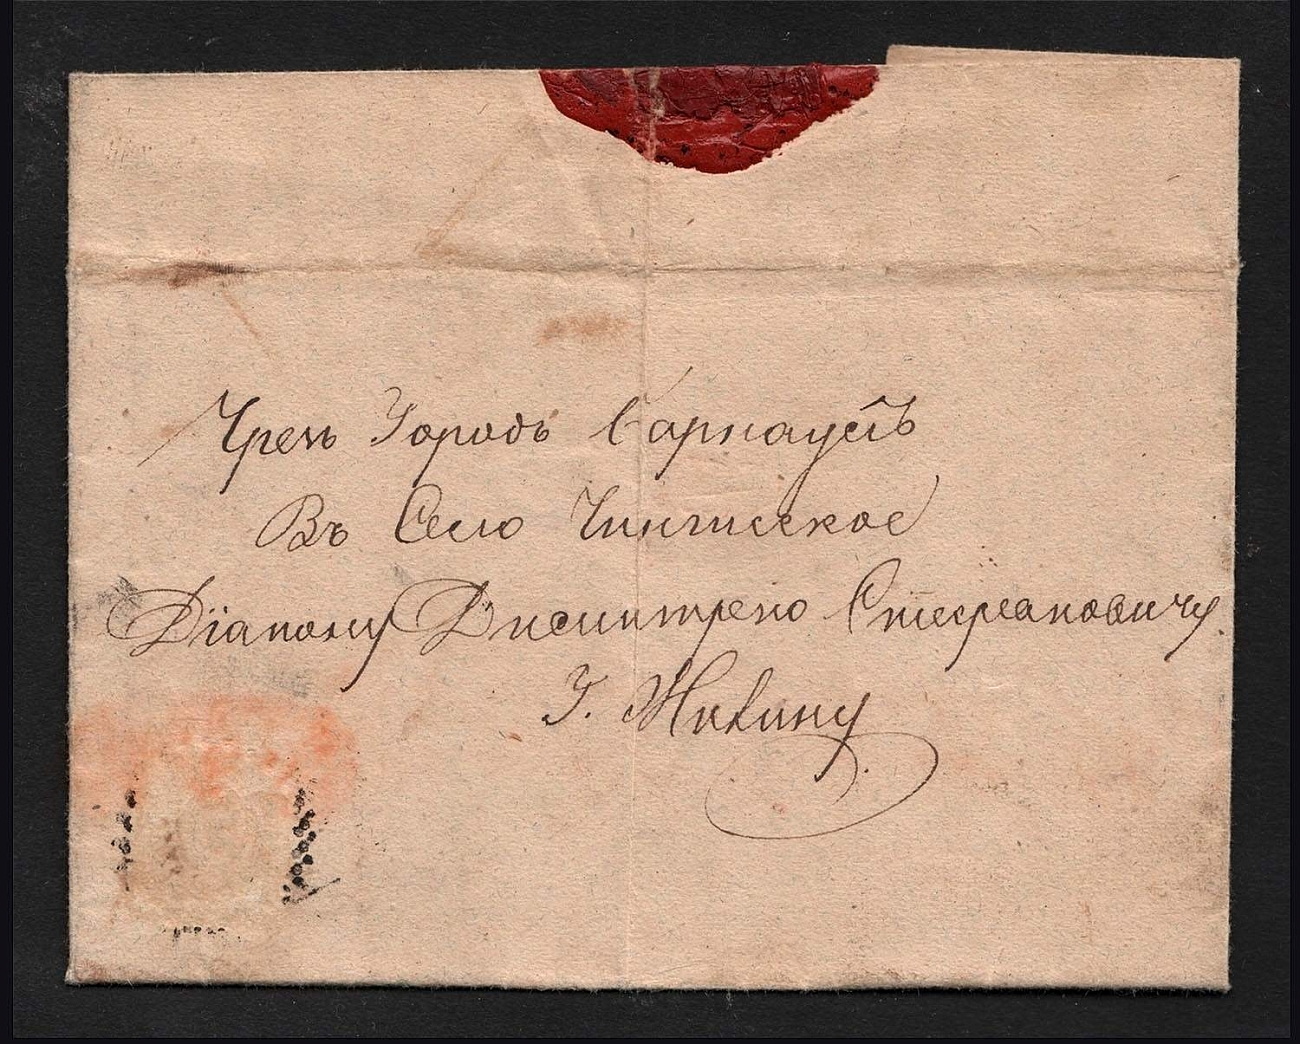 Чрезъ Городъ Барнаулъ
Въ Село Чингисское
Діакону Димитрею Стефановичу.
Г.